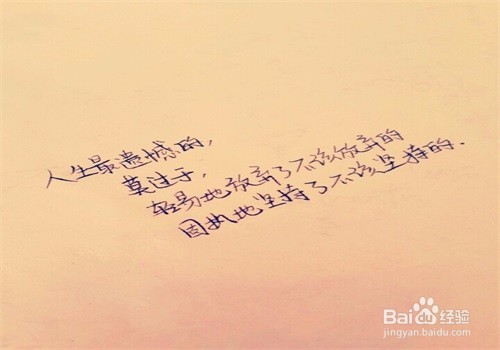 人生最遗憾的，
莫过于，
轻易地放弃了不该放弃的
固执地坚持了不该坚持的.
Baidu经验
jingyan.baidu.com